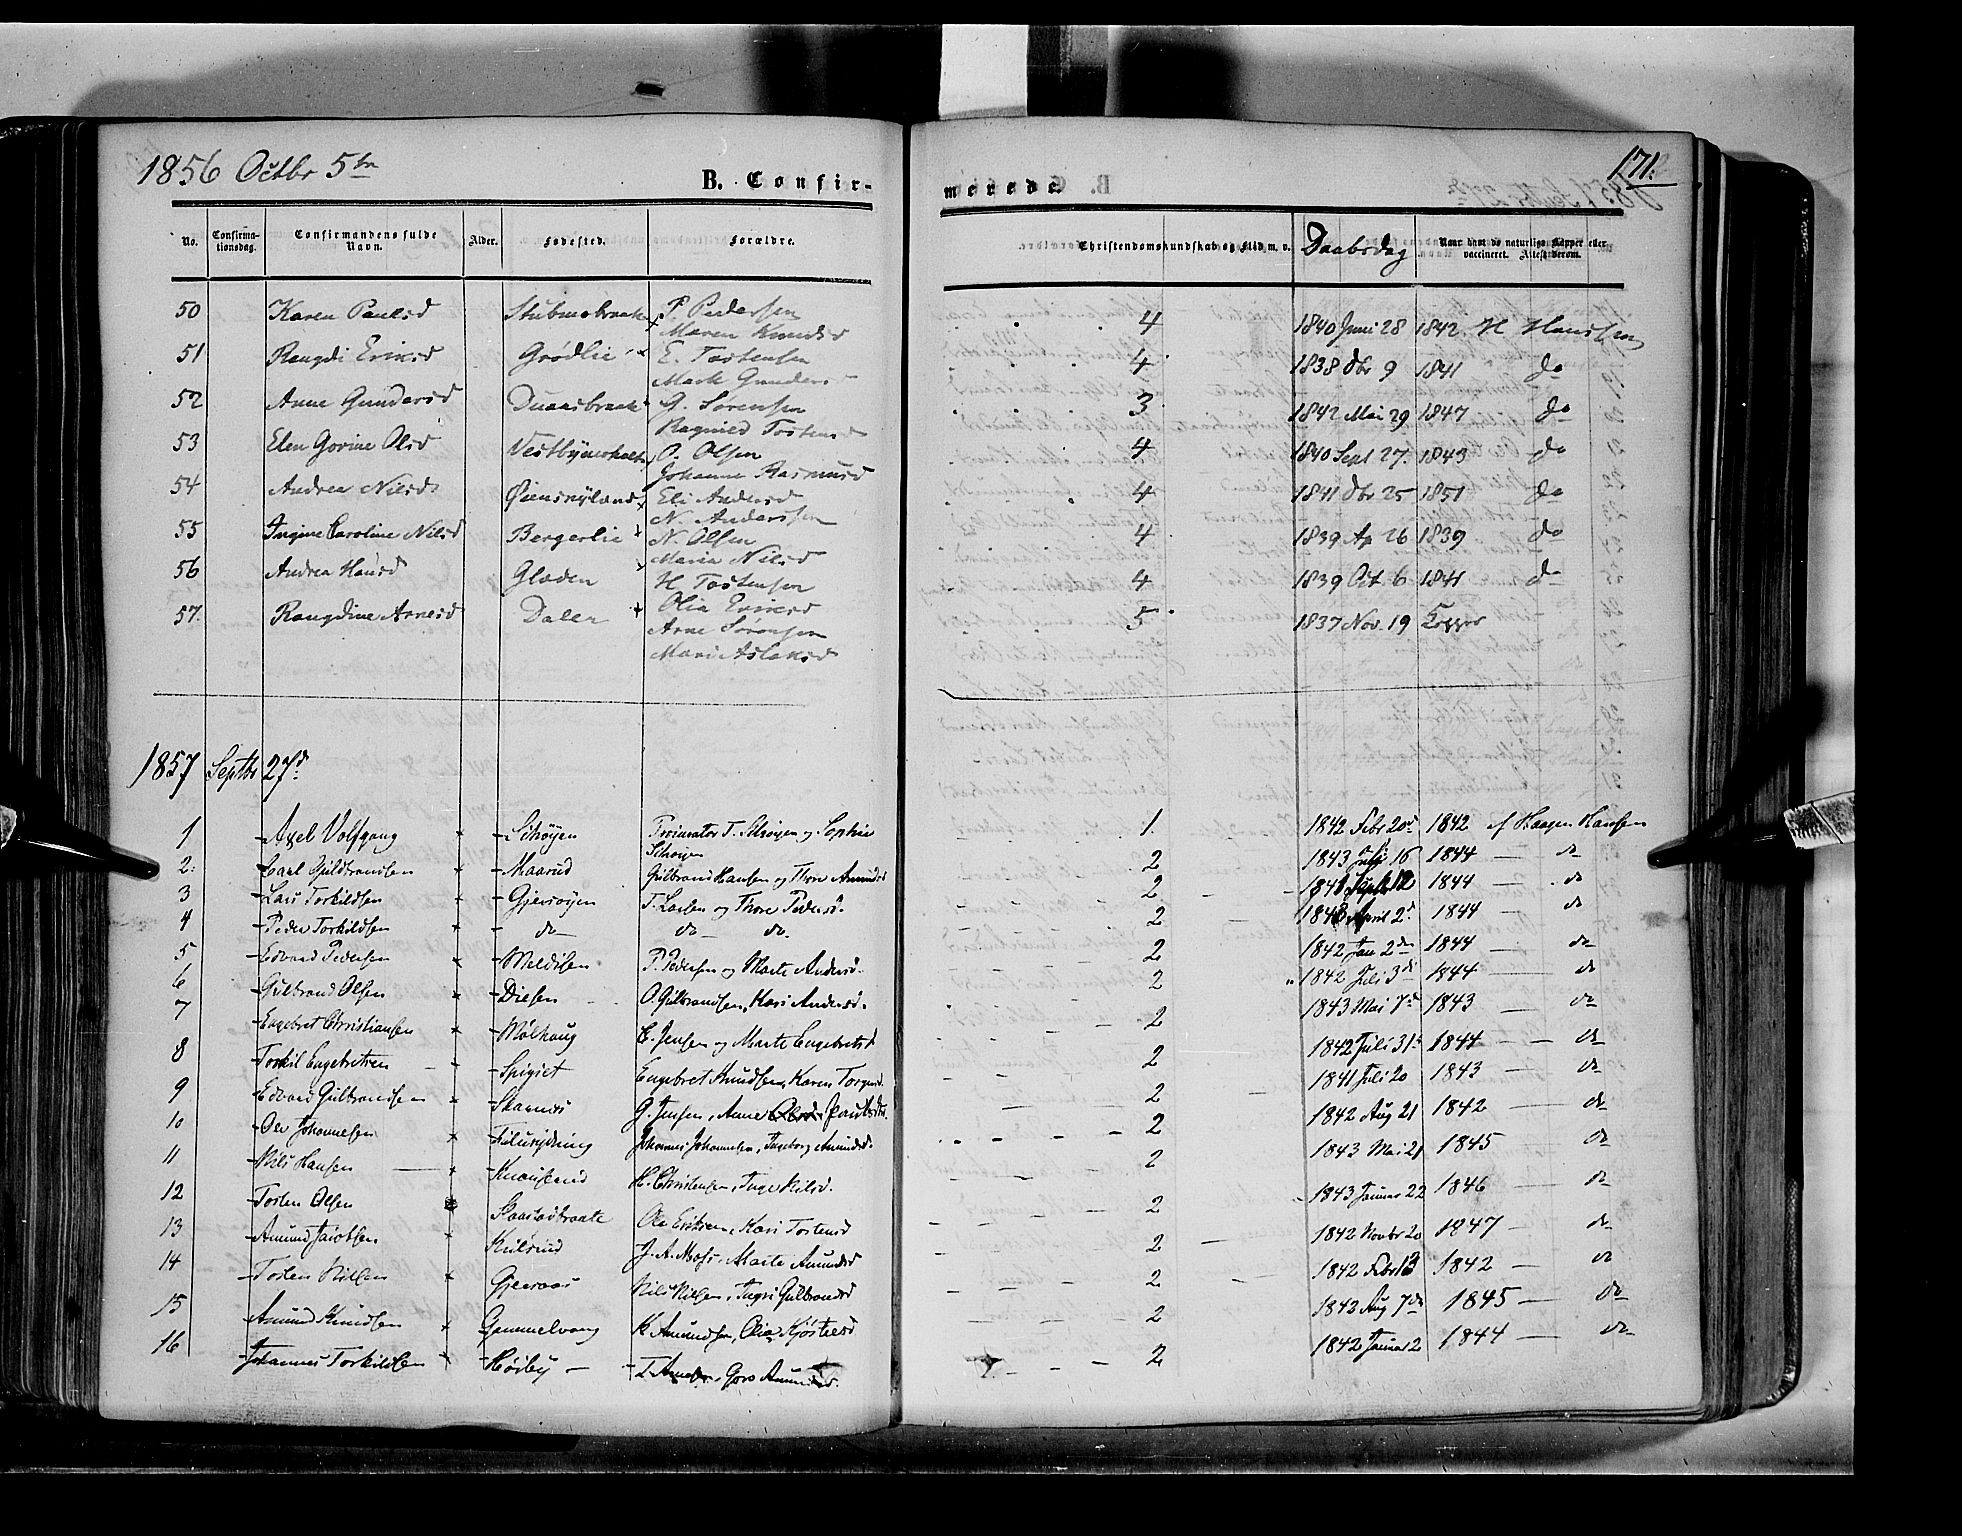 1856 Octbr 5te
B. Confir-
merede
171.
No. Confirma-tionsdag. Confirmandens fulde Navn. Alder. Fødested. Forældre. Christendomskundskab og Flid m. v. Daabsdag Naar havt de naturlige Kopper eller vaccineret. Attest derom.
50 Karen Paulsd P. Pedersen 4 1840 Juni 28 1842 H Hanssen
Maren Knudsd
51 Rangdi Eriksd Grødlie E. Tostensen 4 1838 Dbr 9 1841 do
Marthe Gunders
52 Anne Gundersd G. Sørensen 3 1842 Mai 29 1847 do
Ragnild Tostensd
53 Elen Govine Olsd O. Olsen 4 1840 Sept 27. 1843 do
Johanne Rasmusd
54 Andrea Nilsd Eli Andersd 4 1841 Dbr 25 1851 do
N. Anderssen
55 Ingine Caroline Nilsd Bergerlie N. Olsen 4 1839 Ap 26 1839 do
Maria Nilsd
56 Andrea Hansd Gladen H Tostensen 4 1839 Oct 6 1841 do
Olia Eriksd
57. Rangdine Arnesd Daler Arne Sørensen 5 1837 Nov. 19 Kopper
Mari Aslaksd
1857 Septbr 27d.
1 Axel Volfgang Schøyen Procurator T. Schøyen og Sophie 1. 1842 Febr 20d 1842 af Haagen Hansen
Schøyen
2. Carl Guldbrandsen Maarud Gulbrand Hansen og Thore Amundsd 2 1843 Juli 16 1844 do
3 Lars Torkildsen Gjersøyen T. Larsen og Thore Pedersd. 2 1844 do
4 Peder Torkildsen do do do. 2 April 2d 1844 do
5 Edvard Pedersen Meldisen P. Pedersen og Marte Andersd. 2 1842 Jan 2den 1844 do
6 Gulbrand Olsen Diesen O. Gulbrandsen, Kari Andersd. 2 1842 Juli 3di 1844 do
7 Engebret Christiansen Mølhaug C. Jensen og Marte Engebretsd 2 1843 Mai 7d 1843 do
8 Torkil Engebretsen Spigset Engebret Knudsen, Karen 2 1842 Juli 31 1844 do
9 Edvard Gulbrandsen Skarnæs G. Jensen, Anne 2 1841 Juli 20 1843 do
10 Ole Johannesen Johannes Johannesen, Ingeborg Amundsd. 2 1842 Aug 21 1842 do
11 Nils Hansen H. Christensen, Inge Nilsd. 2 1843 Mai 21 1845 do
12 Tosten Olsen Ole Eriksen, Kari Tostensd 2 1843 Januar 22 1846 do
13 Amund Jacobsen Kulsrud J. A. Moss, Marte Amundsd 2 1842 Novbr 20 1847 do
14 Tosten Nilsen Gjersaas Nils Nilsen, Ingri Gulbrandsd 2 1842 Febr 13 1842 do
15 Amund Knudsen Gammelvang K Amundsen, Olia Kjøstelsd 2 1842 Aug 7de 1845 do
16 Johannes Torkildsen Høiby T. Goro Amundsd. 2 1842 Januar 2 1844 do